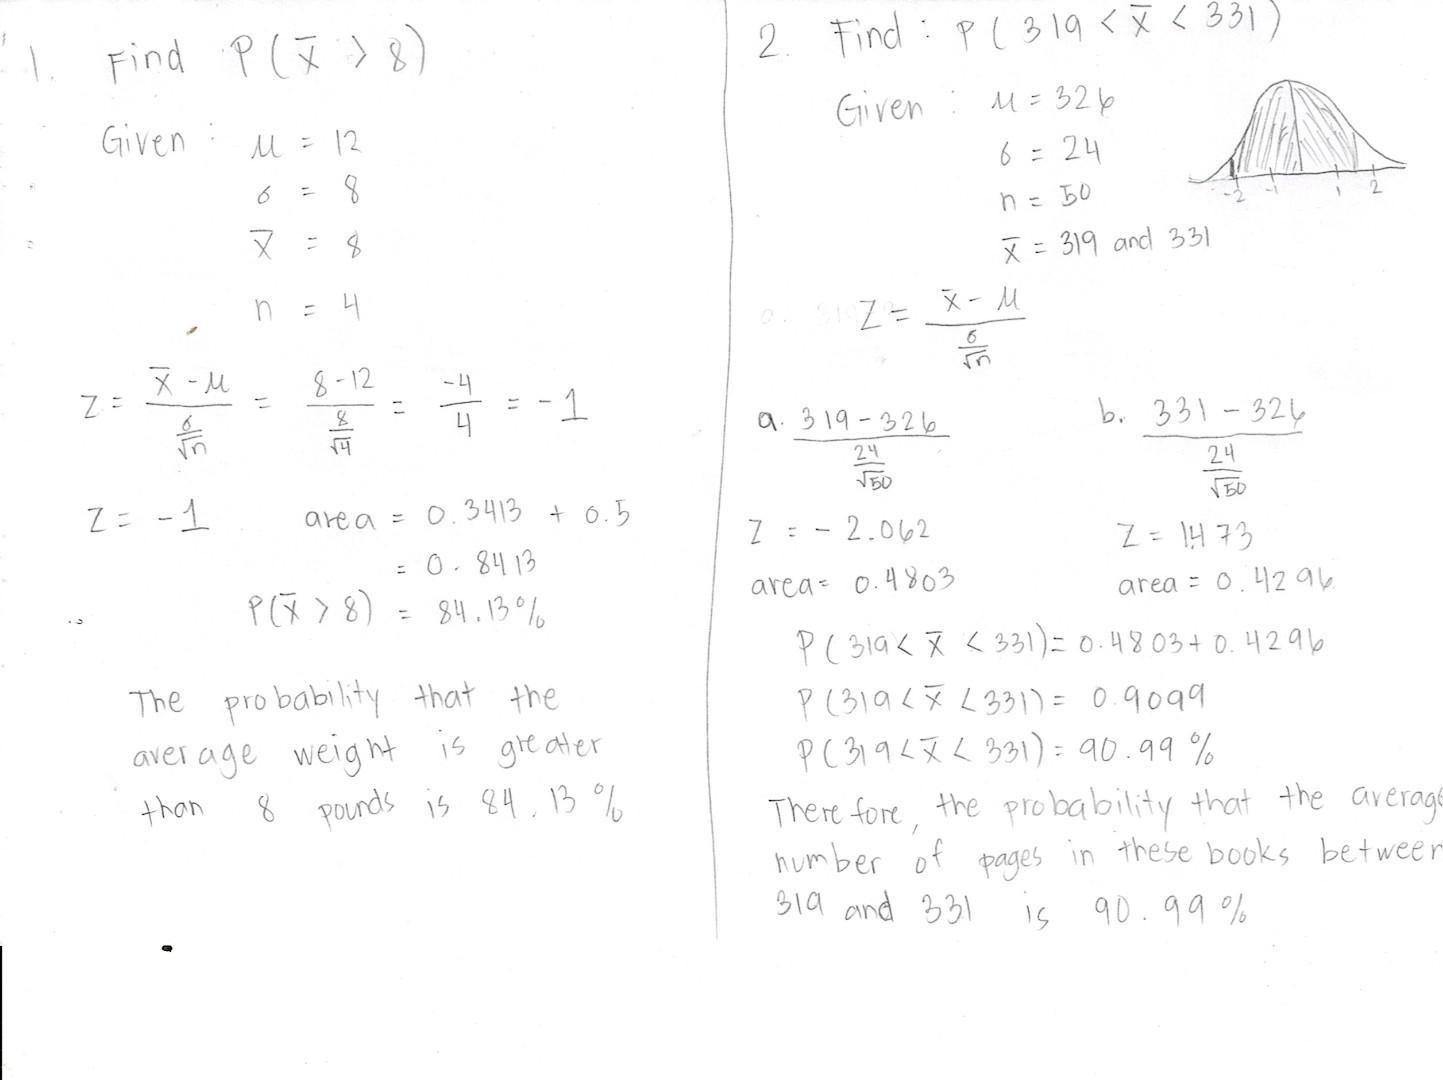 1. Find P(x̄ > 8)
Given : μ = 12
σ = 8
x̄ = 8
n = 4
z = (x̄ - μ)/(σ/√n) = (8-12)/(8/√4) = -4/4 = -1
z = -1 area = 0.3413 + 0.5
= 0.8413
P(x̄ > 8) = 84.13%
The probability that the
average weight is greater
than 8 pounds is 84.13%
2. Find : P(319 < x̄ < 331)
Given : μ = 326
σ = 24
n = 50
x̄ = 319 and 331
-2 -1 1 2
Z = (x̄ - μ)/(σ/√n)
a. (319-326)/(24/√50)
Z = -2.062
area = 0.4803
b. (331-326)/(24/√50)
Z = 1.473
area = 0.4296
P(319 < x̄ < 331) = 0.4803 + 0.4296
P(319 < x̄ < 331) = 0.9099
P(319 < x̄ < 331) = 90.99%
Therefore, the probability that the average
number of pages in these books between
319 and 331 is 90.99%